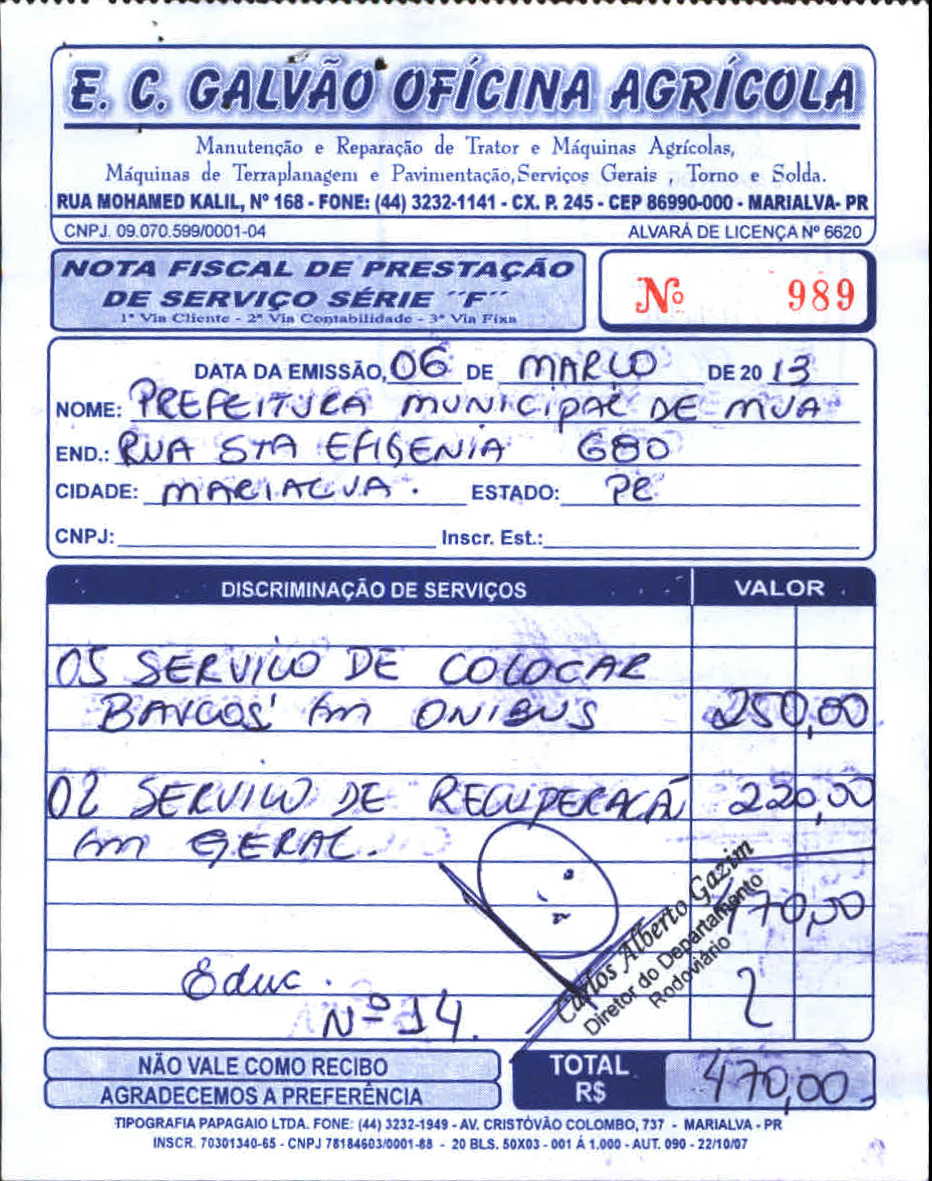 E. C. GALVÃO OFÍCINA AGRÍCOLA
Manutenção e Reparação de Trator e Máquinas Agrícolas,
Máquinas de Terraplanagem e Pavimentação,Serviços Gerais , Torno e Solda.
RUA MOHAMED KALIL, Nº 168 - FONE: (44) 3232-1141 - CX. P. 245 - CEP 86990-000 - MARIALVA- PR
CNPJ. 09.070.599/0001-04 ALVARÁ DE LICENÇA Nº 6620
NOTA FISCAL DE PRESTAÇÃO
DE SERVIÇO SÉRIE ´´F´´
1ª Via Cliente - 2ª Via Contabilidade - 3ª Via Fixa
Nº 989
DATA DA EMISSÃO, 06 DE MARÇO DE 20 13
NOME: PREFEITURA MUNICIPAL DE MVA
END.: RUA STA EFIGENIA 680
CIDADE: MARIALVA. ESTADO: PR
CNPJ: Inscr. Est.:
DISCRIMINAÇÃO DE SERVIÇOS VALOR
05 SERVIÇO DE COLOCAR
BANCOS EM ONIBUS 250,00
02 SERVIÇO DE RECUPERAÇÃ 220,00
EM GERAL.
470,00
Carlos Alberto Gazim
Diretor do Departamento
Rodoviário
Educ.
Nº 14.
NÃO VALE COMO RECIBO
AGRADECEMOS A PREFERÊNCIA
TOTAL R$ 470,00
TIPOGRAFIA PAPAGAIO LTDA. FONE: (44) 3232-1949 - AV. CRISTÓVÃO COLOMBO, 737 - MARIALVA - PR
INSCR. 70301340-65 - CNPJ 78184603/0001-88 - 20 BLS. 50X03 - 001 Á 1.000 - AUT. 090 - 22/10/07